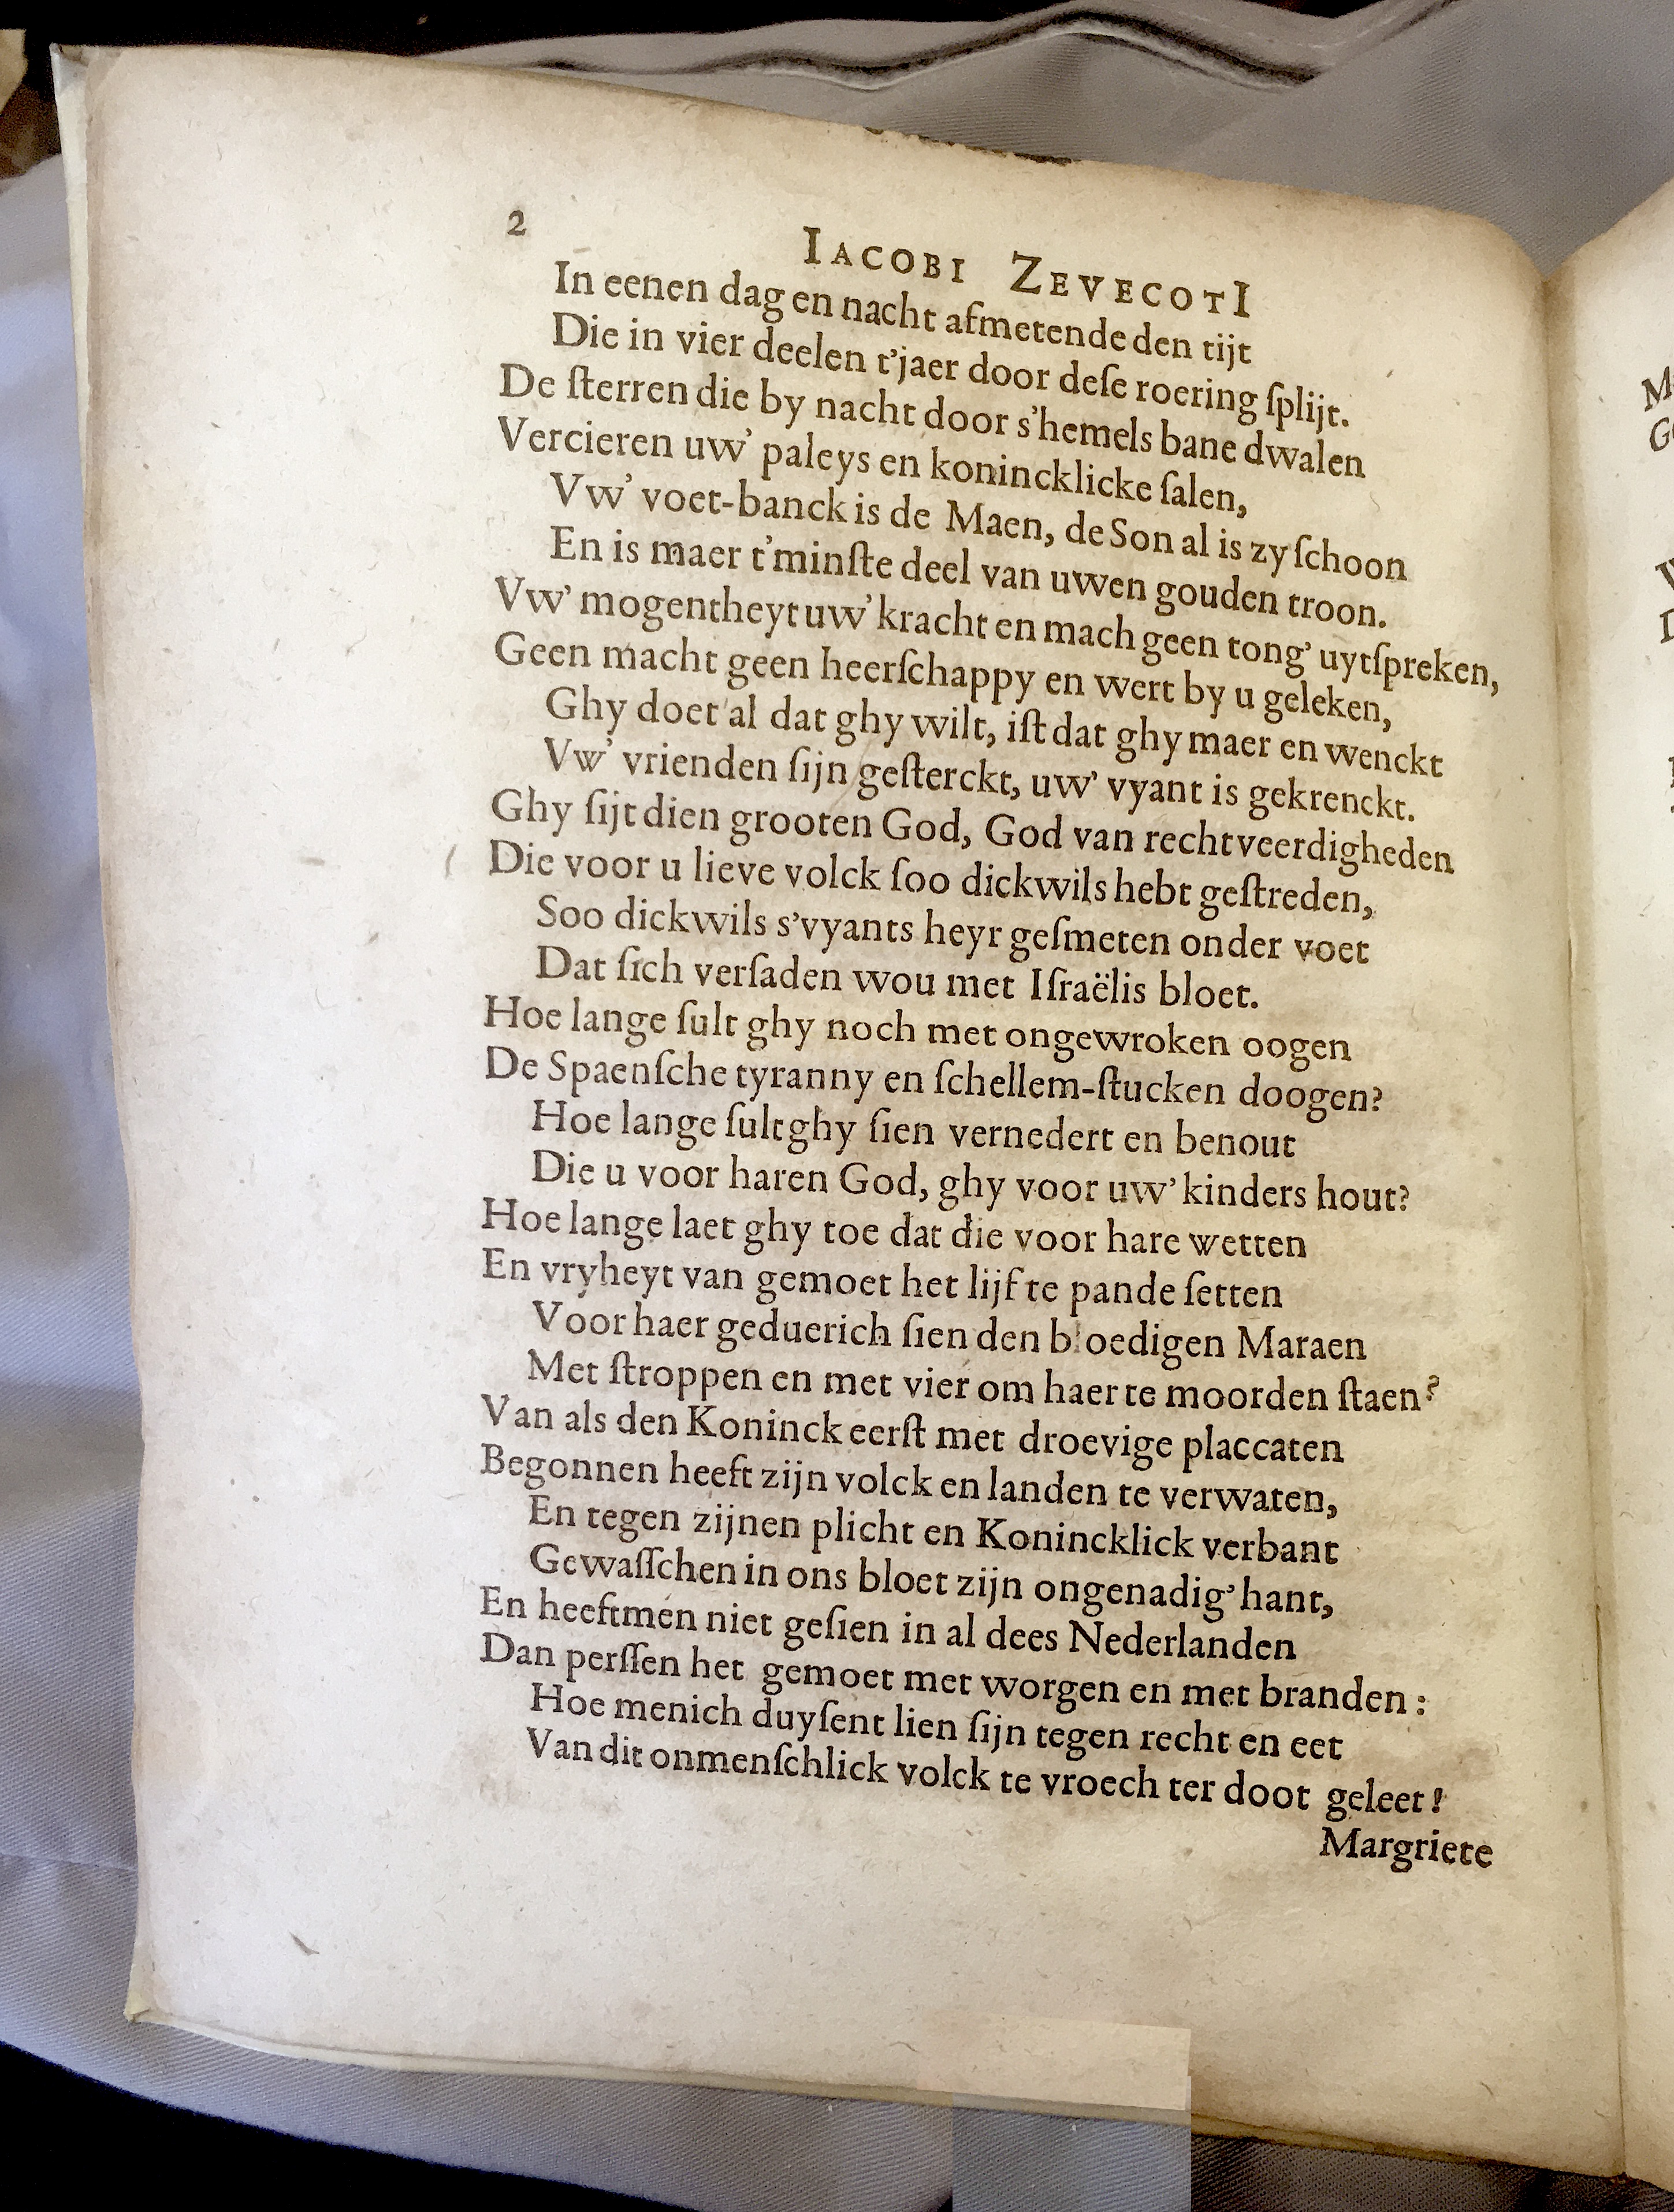 2
IACOBI ZEVECOTI
In eenen dag en nacht afmetende den tijt
Die in vier deelen t'jaer door deſe roering ſplijt.
De ſterren die by nacht door s'hemels bane dwalen
Vercieren uw' paleys en konincklicke ſalen,
Vw' voet-banck is de Maen, de Son al is zy ſchoon
En is maer t'minſte deel van uwen gouden troon.
Vw' mogentheyt uw' kracht en mach geen tong' uytſpreken,
Geen macht geen heerſchappy en wert by u geleken,
Ghy doet al dat ghy wilt, iſt dat ghy maer en wenckt
Vw' vrienden ſijn geſterckt, uw' vyant is gekrenckt.
Ghy ſijt dien grooten God, God van rechtveerdigheden
Die voor u lieve volck ſoo dickwils hebt geſtreden,
Soo dickwils s'vyants heyr geſmeten onder voet
Dat ſich verſaden wou met Iſraëlis bloet.
Hoe lange ſult ghy noch met ongewroken oogen
De Spaenſche tyranny en ſchellem-ſtucken doogen?
Hoe lange ſult ghy ſien vernedert en benout
Die u voor haren God, ghy voor uw' kinders hout?
Hoe lange laet ghy toe dat die voor hare wetten
En vryheyt van gemoet het lijf te pande ſetten
Voor haer geduerich ſien den bloedigen Maraen
Met ſtroppen en met vier om haer te moorden ſtaen?
Van als den Koninck eerſt met droevige placcaten
Begonnen heeft zijn volck en landen te verwaten,
En tegen zijnen plicht en Konincklick verbant
Gewaſſchen in ons bloet zijn ongenadig' hant,
En heeftmen niet geſien in al dees Nederlanden
Dan perſſen het gemoet met worgen en met branden:
Hoe menich duyſent lien ſijn tegen recht en eet
Van dit onmenſchlick volck te vroech ter doot geleet!
Margriete